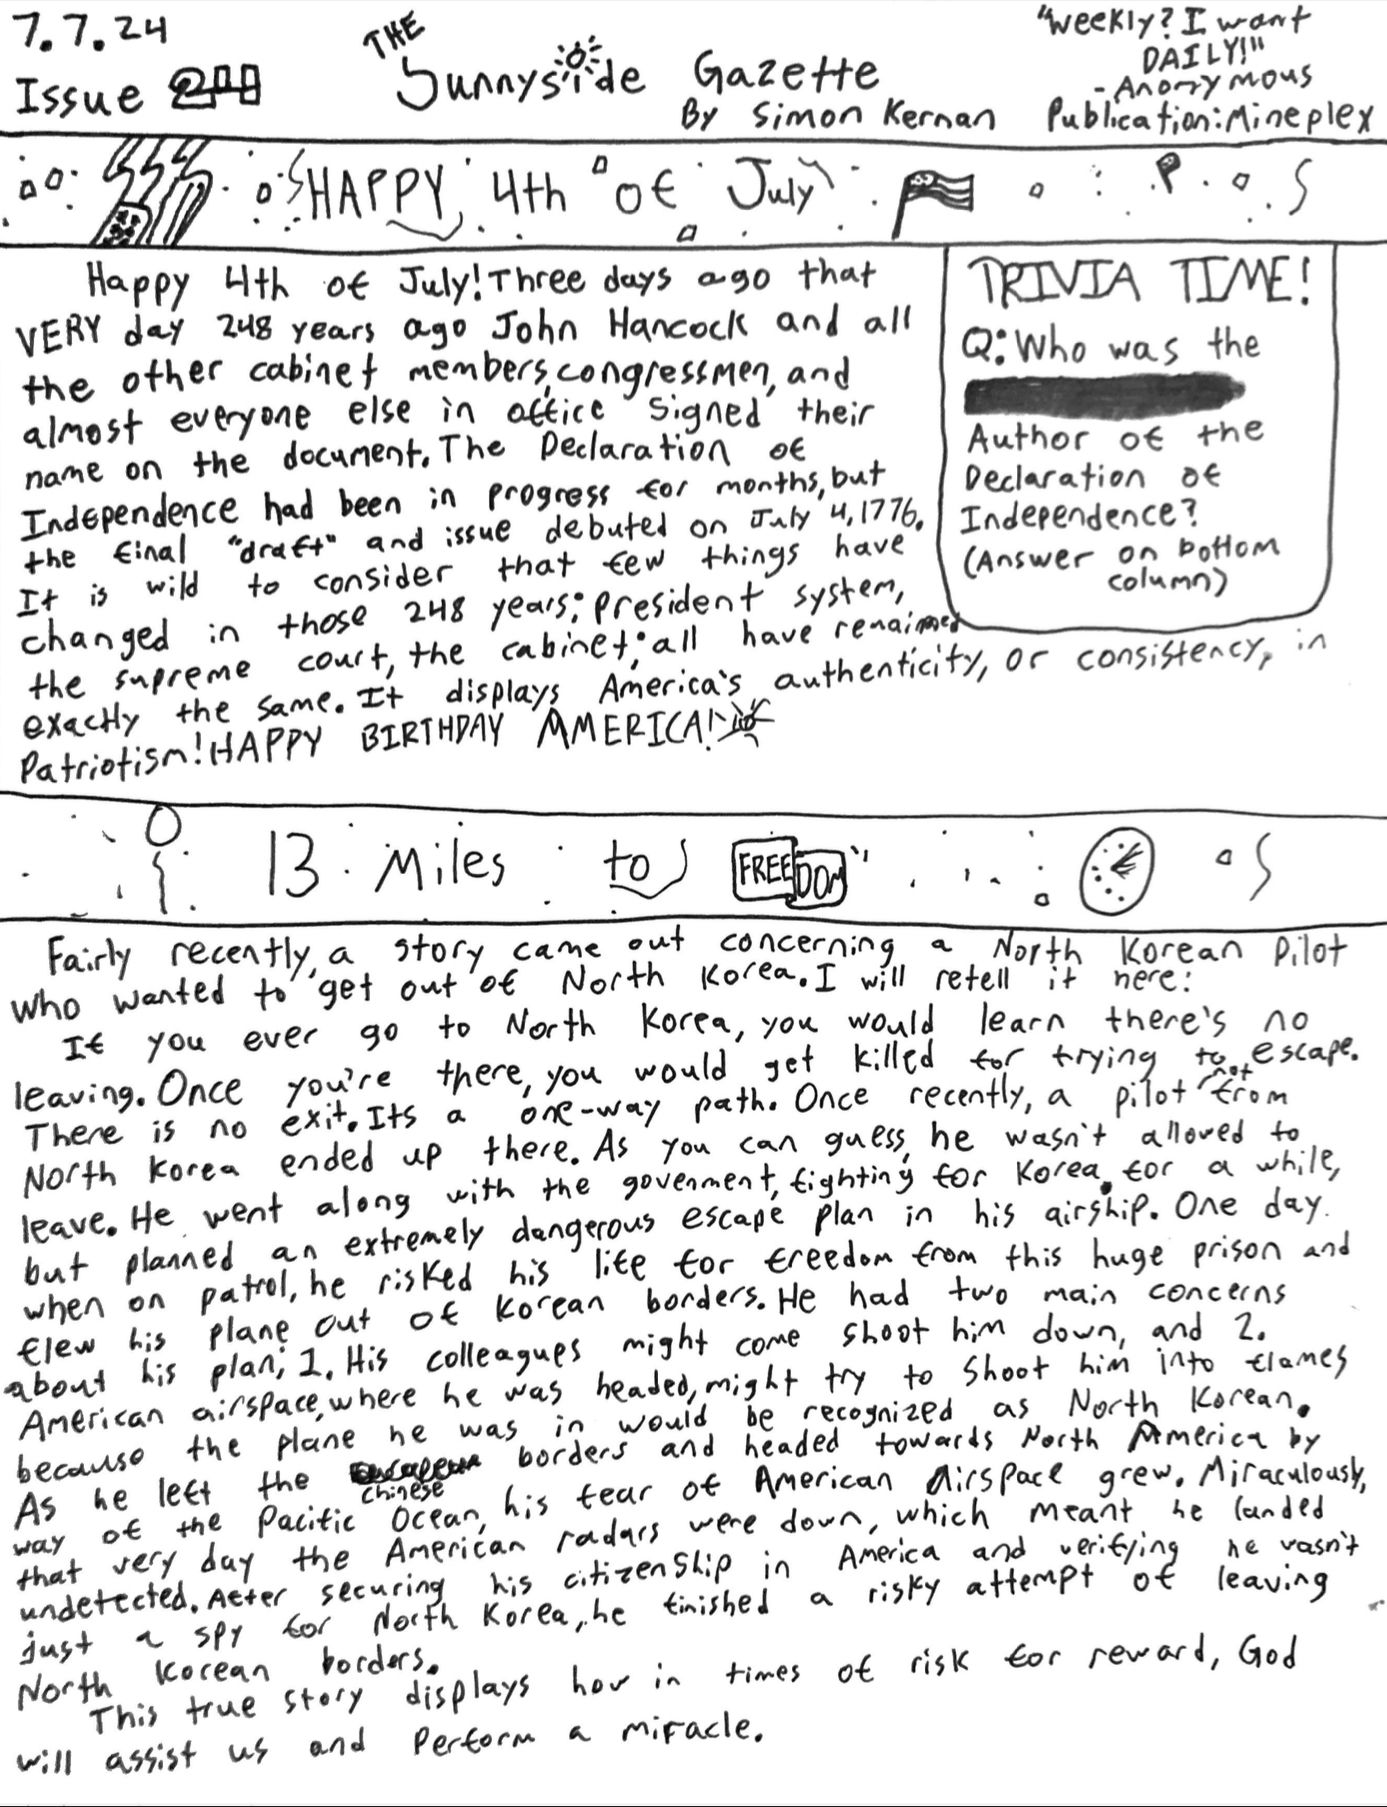 7.7.24
Issue
THE
Sunnyside Gazette
By Simon Kernan
"Weekly? I want
DAILY!"
-Anonymous
Publication: Mineplex
HAPPY 4th of July
Happy 4th of July! Three days ago that
VERY day 248 years ago John Hancock and all
the other cabinet members, congressmen, and
almost everyone else in office signed their
name on the document. The Declaration of
Independence had been in progress for months, but
the final "draft" and issue debuted on July 4, 1776.
It is wild to consider that few things have
changed in those 248 years: president system,
the supreme court, the cabinet; all have remained
exactly the same. It displays America's authenticity, or consistency, in
Patriotism! HAPPY BIRTHDAY AMERICA!
TRIVIA TIME!
Q: Who was the
Author of the
Declaration of
Independence?
(Answer on bottom
column)
13 Miles to FREEDOM
Fairly recently, a story came out concerning a North Korean Pilot
who wanted to get out of North Korea. I will retell it here:
If you ever go to North Korea, you would learn there's no
leaving. Once you're there, you would get killed for trying to escape.
There is no exit. Its a one-way path. Once recently, a pilot not from
North Korea ended up there. As you can guess, he wasn't allowed to
leave. He went along with the govenment, fighting for Korea, for a while,
but planned an extremely dangerous escape plan in his airship. One day
when on patrol, he risked his life for freedom from this huge prison and
flew his plane out of Korean borders. He had two main concerns
about his plan; 1. His colleagues might come shoot him down, and 2.
American airspace, where he was headed, might try to shoot him into flames
because the plane he was in would be recognized as North Korean.
As he left the Chinese borders and headed towards North America by
way of the Pacific Ocean, his fear of American Airspace grew. Miraculously,
that very day the American radars were down, which meant he landed
undetected. After securing his citizenship in America and verifying he wasn't
just a spy for North Korea, he finished a risky attempt of leaving
North Korean borders.
This true story displays how in times of risk for reward, God
will assist us and perform a miracle.